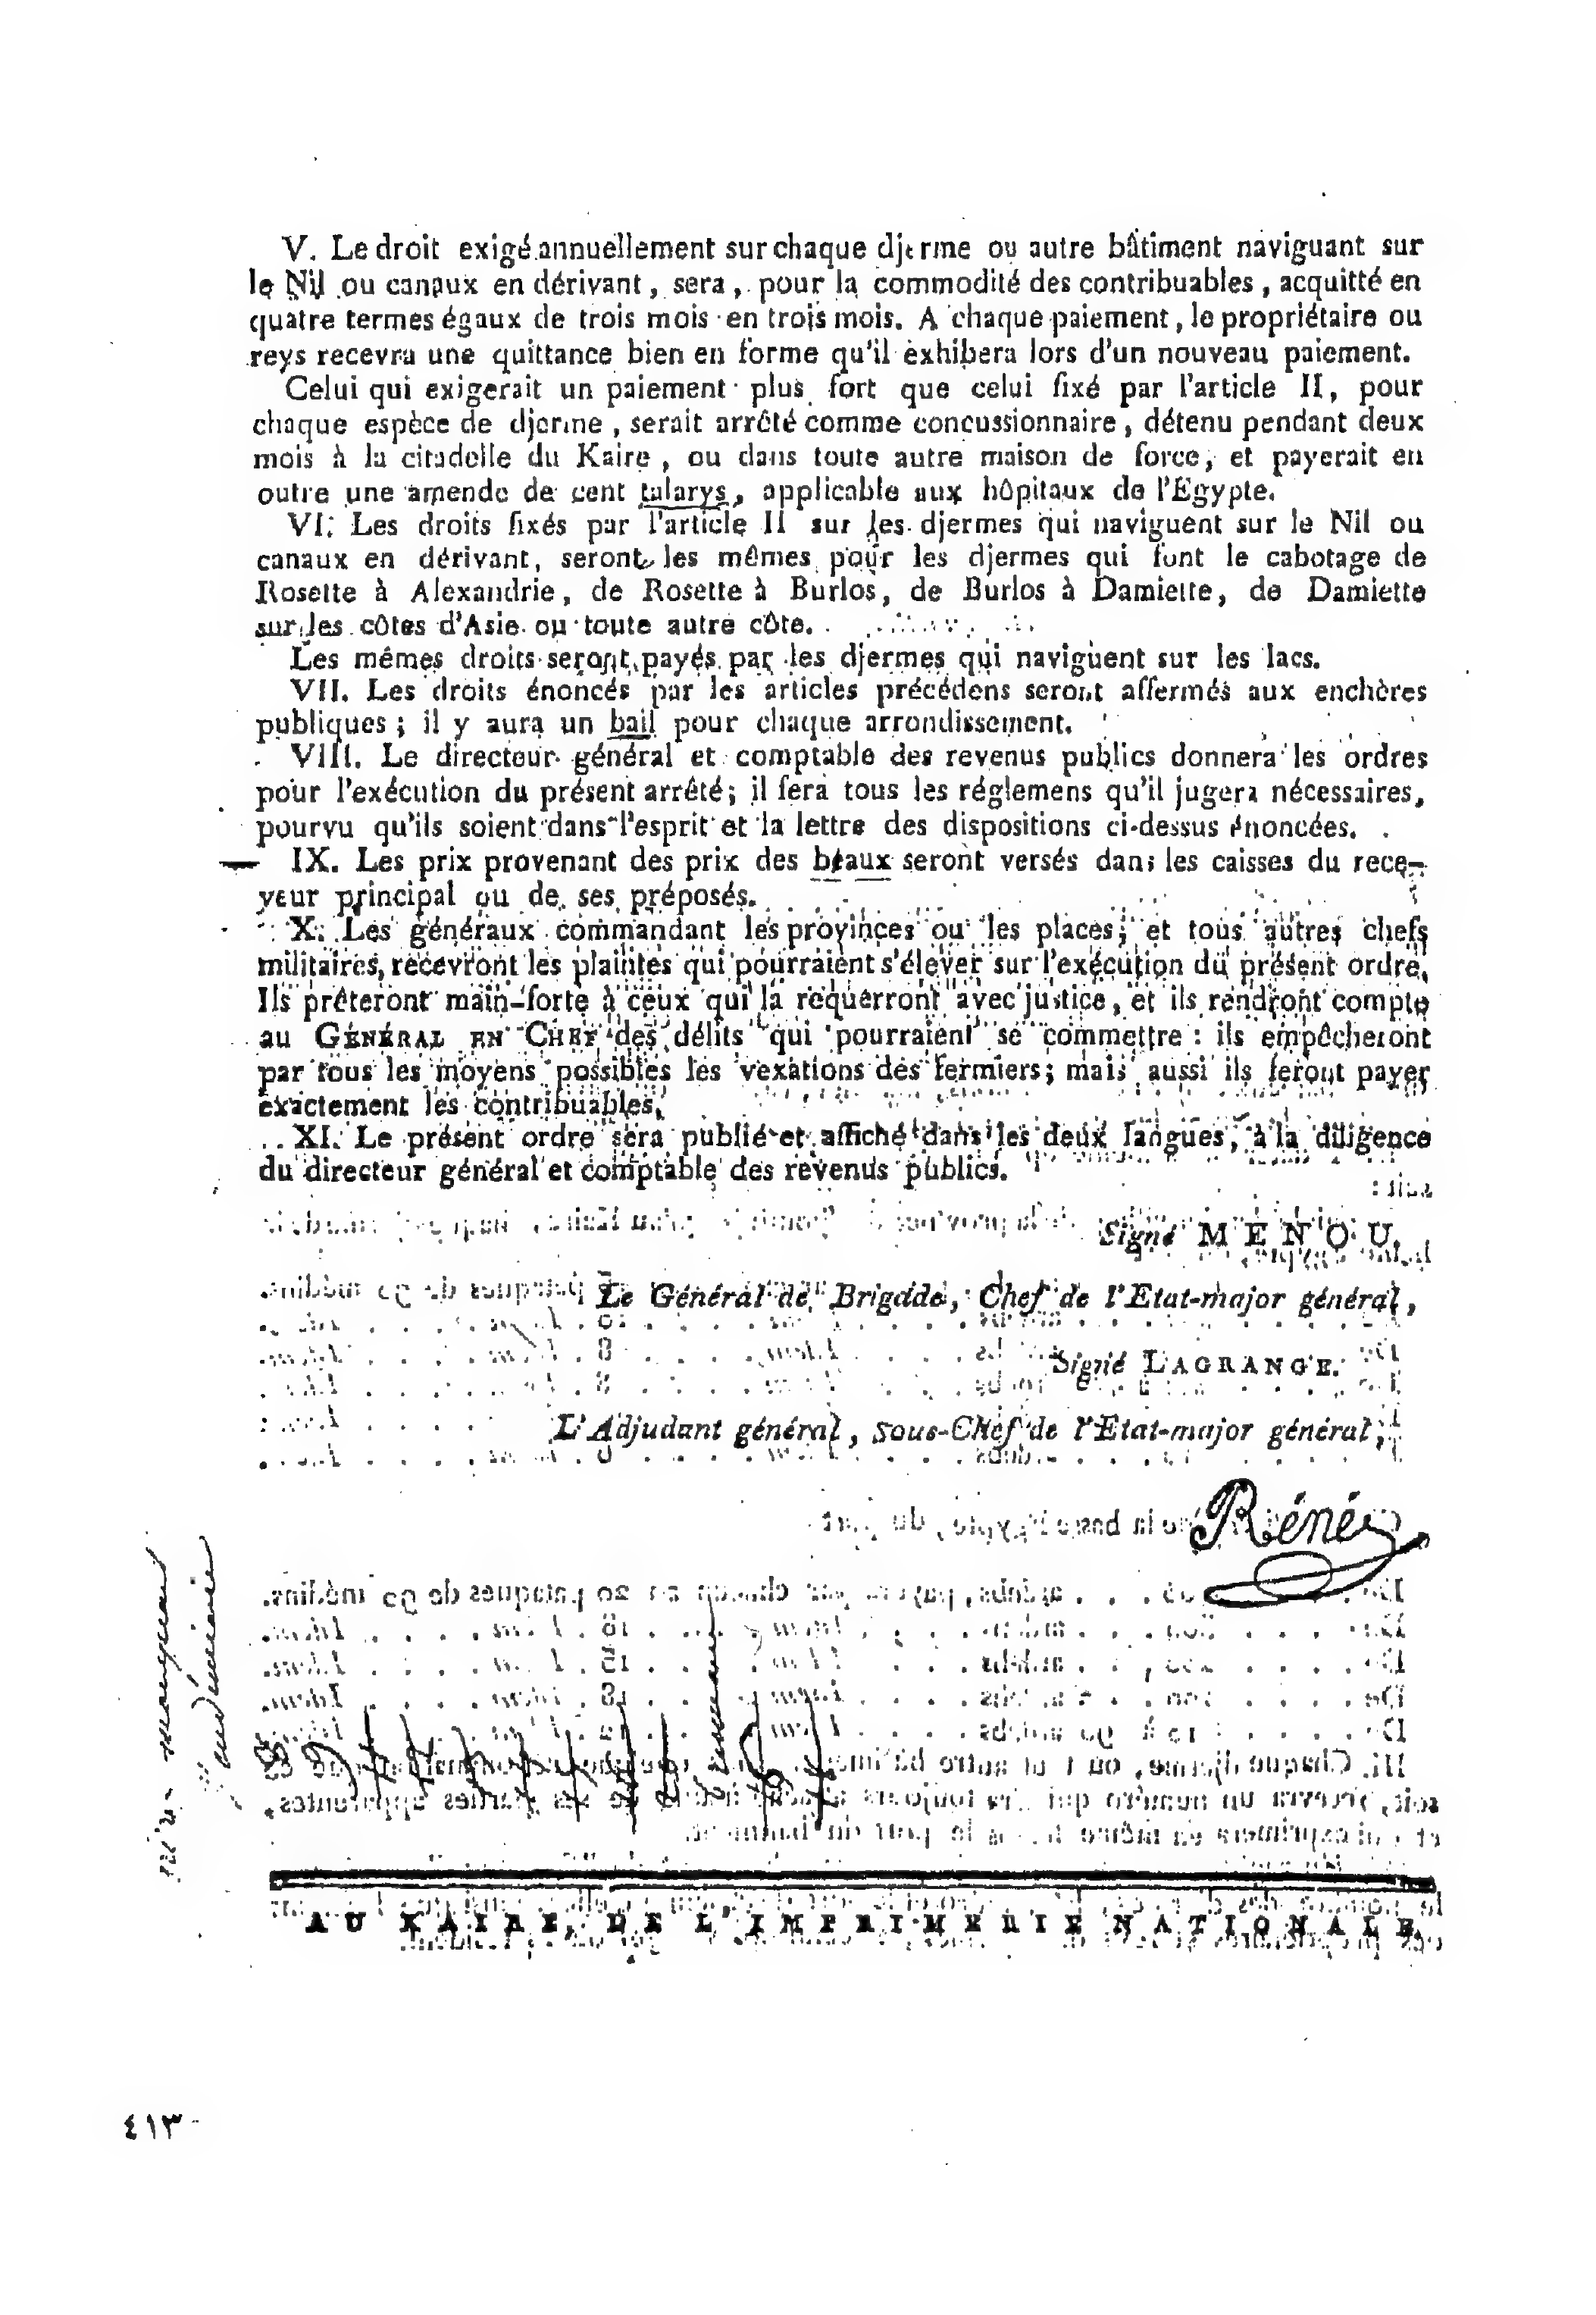 V. Le droit exigé annuellement sur chaque djerme ou autre bâtiment naviguant sur
le Nil ou canaux en dérivant, sera, pour la commodité des contribuables, acquitté en
quatre termes égaux de trois mois en trois mois. A chaque paiement, le propriétaire ou
reys recevra une quittance bien en forme qu'il exhibera lors d'un nouveau paiement.
Celui qui exigerait un paiement plus fort que celui fixé par l'article II, pour
chaque espèce de djerme, serait arrêté comme concussionnaire, détenu pendant deux
mois à la citadelle du Kaire, ou dans toute autre maison de force, et payerait en
outre une amende de cent talarys, applicable aux hôpitaux de l'Egypte.
VI. Les droits fixés par l'article II sur les djermes qui naviguent sur le Nil ou
canaux en dérivant, seront les mêmes pour les djermes qui font le cabotage de
Rosette à Alexandrie, de Rosette à Burlos, de Burlos à Damiette, de Damiette
sur les côtes d'Asie ou toute autre côte.
Les mêmes droits seront payés par les djermes qui naviguent sur les lacs.
VII. Les droits énoncés par les articles précédens seront affermés aux enchères
publiques; il y aura un bail pour chaque arrondissement.
VIII. Le directeur général et comptable des revenus publics donnera les ordres
pour l'exécution du présent arrêté; il fera tous les réglemens qu'il jugera nécessaires,
pourvu qu'ils soient dans l'esprit et la lettre des dispositions ci-dessus énoncées.
IX. Les prix provenant des prix des beaux seront versés dans les caisses du rece-
veur principal ou de ses préposés.
X. Les généraux commandant les provinces ou les places, et tous autres chefs
militaires, recevront les plaintes qui pourraient s'élever sur l'exécution du présent ordre.
Ils prêteront main-forte à ceux qui la requerront avec justice, et ils rendront compte
au GÉNÉRAL EN CHEF des délits qui pourraient se commettre : ils empêcheront
par tous les moyens possibles les vexations des fermiers; mais aussi ils feront payer
exactement les contribuables.
XI. Le présent ordre sera publié et affiché dans les deux langues, à la diligence
du directeur général et comptable des revenus publics.
Signé MENOU.
Le Général de Brigade, Chef de l'Etat-major général,
Signé LAGRANGE.
L'Adjudant général, sous-Chef de l'Etat-major général,
Réné
AU KAIRE, DE L'IMPRIMERIE NATIONALE.
٤١٣